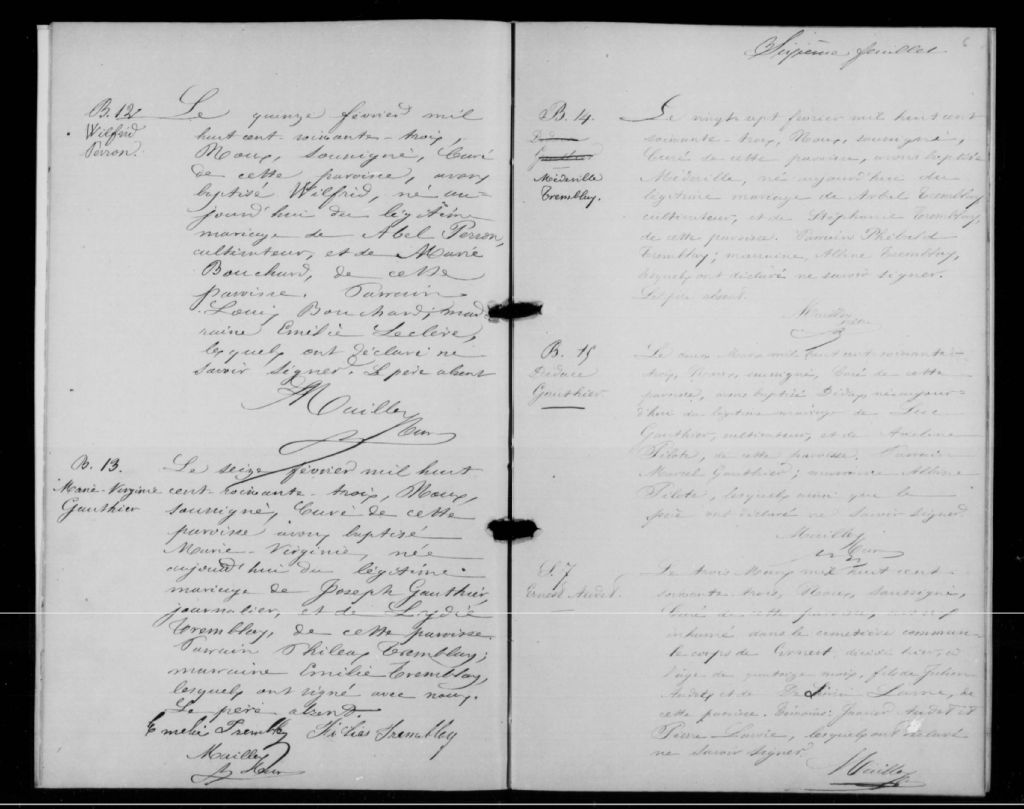 B. 12
Wilfrid
Perron.
Le quinze février mil
huit cent-soixante-trois,
Nous, soussigné, Curé
de cette paroisse, avons
baptisé Wilfrid, né au-
jourd'hui du légitime
mariage de Abel Perron,
cultivateur, et de Marie
Bouchard, de cette
paroisse. Parrain
Louis Bouchard; mar-
raine Emilie Leclerc,
lesquels ont déclaré ne
savoir signer. Le père absent
Mailley
Curé
B. 13.
Marie-Virginie
Gauthier
Le seize février mil huit
cent-soixante-trois, Nous,
soussigné, Curé de cette
paroisse avons baptisé
Marie-Virginie, née
aujourd'hui du légitime
mariage de Joseph Gauthier,
journalier, et de Lydie
Tremblay, de cette paroisse.
Parrain Phileas Tremblay;
marraine Emilie Tremblay,
lesquels ont signé avec nous.
Le père absent.
Emelie Tremblay Filies Tremblay
Mailley
Curé
Sixième feuillet
6
B. 14.
Méderille
Tremblay.
Le vingt sept février mil huit cent
soixante-trois, Nous, soussigné,
Curé de cette paroisse, avons baptisé
Méderille, né aujourd'hui du
légitime mariage de Tremblay
cultivateur, et de Stéphanie Tremblay,
de cette paroisse. Parrain
Tremblay; marraine, Tremblay,
lesquels ont déclaré ne savoir signer.
Le père absent.
Mailley
Curé
B. 15
Didace
Gauthier
Le deux Mars mil huit cent soixante-
trois, Nous, soussigné, Curé de cette
paroisse, avons baptisé né aujour-
d'hui du légitime mariage de Luc
Gauthier, cultivateur, et de
Pilote, de cette paroisse. Parrain
Gauthier; marraine
Pilote, lesquels ainsi que le
père ont déclaré ne savoir signer.
Mailley
Curé
S. 7
Ernest Audet.
Le trois Mars mil huit cent-
soixante-trois, Nous, soussigné,
Curé de cette paroisse, avons
inhumé dans le cimetière commun
le corps de Ernest, décédé hier, à
l'âge de mois, fils de
Audet, et de Lavoie, de
cette paroisse. Témoins: Audet et
Pierre Lavoie, lesquels ont déclaré
ne savoir signer.
Mailley